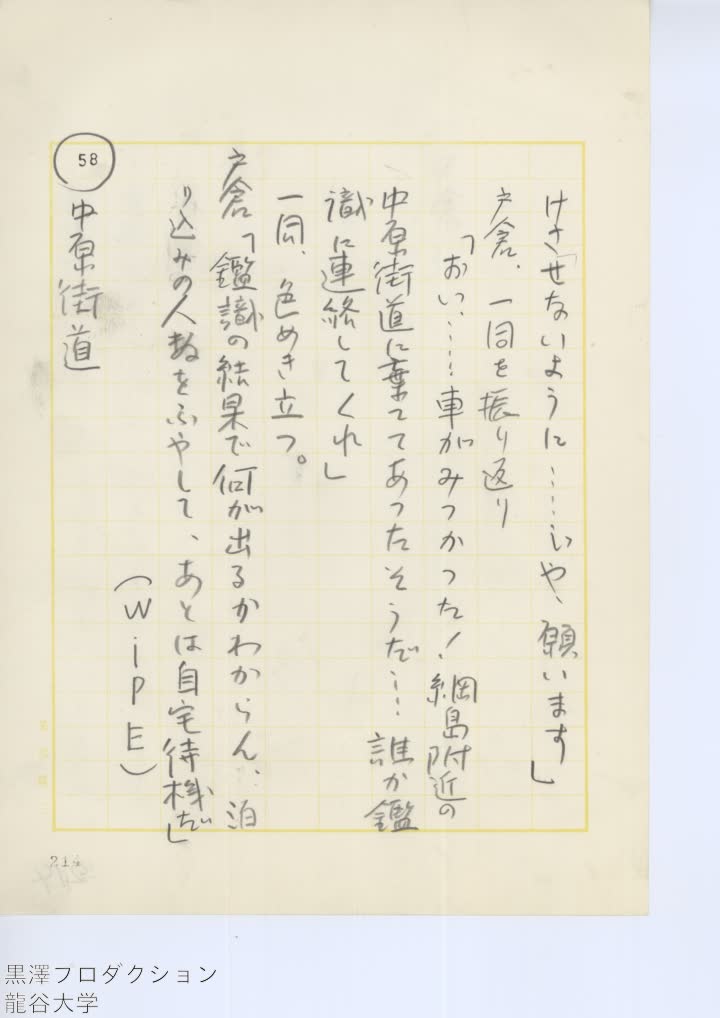 けさせないように……いや、願います」
戸倉、一同を振り返り
「おい、……車がみつかった！綱島附近の
中原街道に棄てゝあったそうだ……誰か鑑
識に連絡してくれ」
一同、色めき立つ。
戸倉「鑑識の結果で何が出るかわからん、泊
り込みの人数をふやして、あとは自宅待機だ」
（WiPE）
58
中原街道
214
黒澤プロダクション
龍谷大学